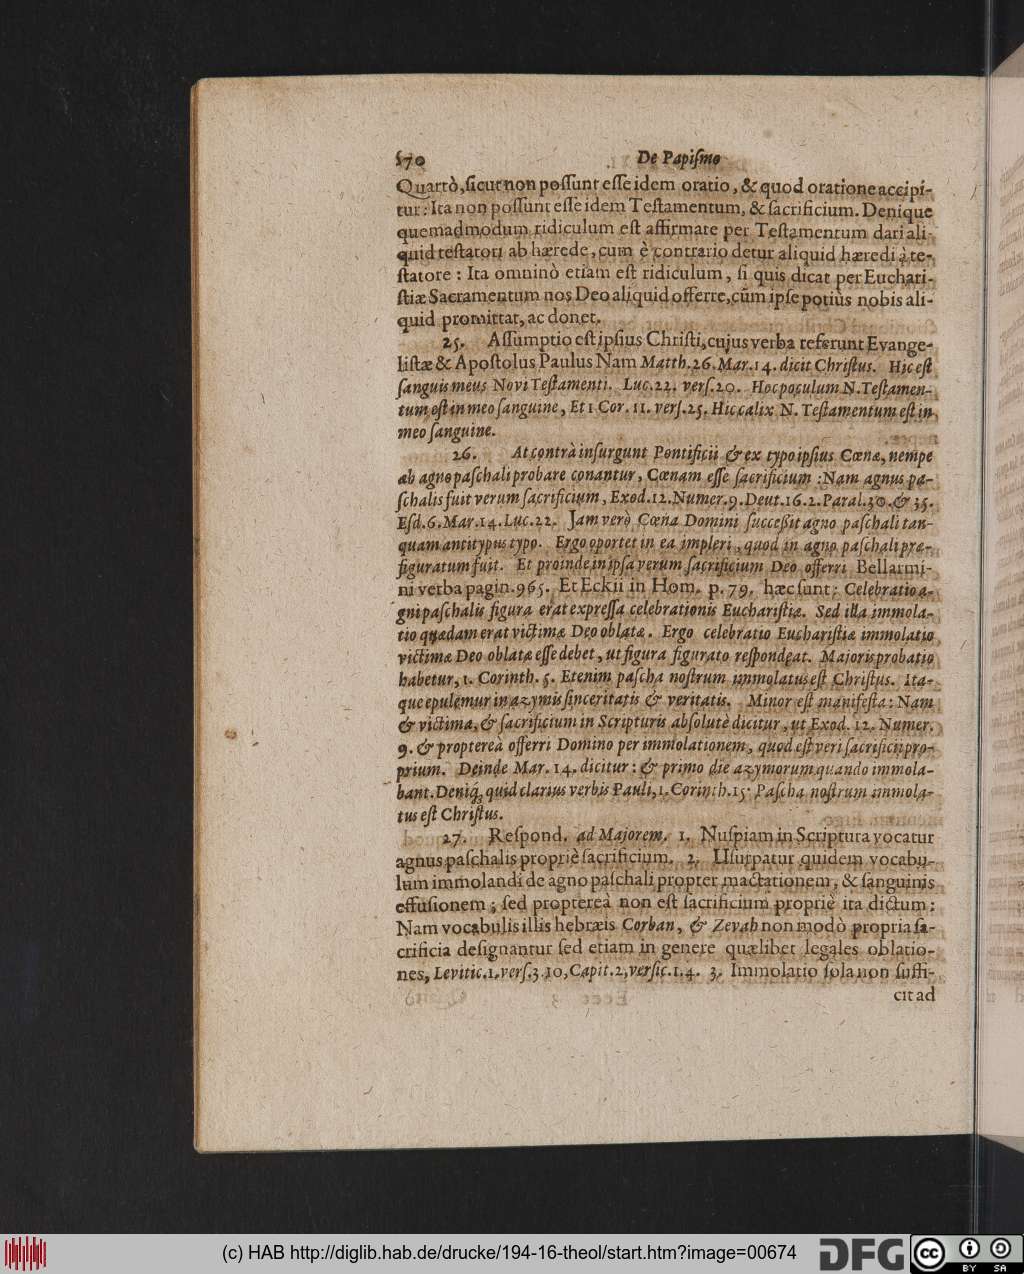 570 De Papiſmo
Quartò, ſicut non poſſunt eſſe idem oratio, & quod oratione accipi-
tur: Ita non poſſunt eſſe idem Teſtamentum, & ſacrificium. Denique
quemadmodum ridiculum eſt affirmare per Teſtamentum dari ali-
quid teſtatori ab hærede, cum è contrario detur aliquid hæredi à te-
ſtatore: Ita omninò etiam eſt ridiculum, ſi quis dicat per Euchari-
ſtiæ Sacramentum nos Deo aliquid offerre, cũm ipſe potiùs nobis ali-
quid promittat, ac donet.
25. Aſſumptio eſt ipſius Chriſti, cujus verba referunt Evange-
liſtæ & Apoſtolus Paulus Nam Matth. 26. Mar. 14. dicit Chriſtus. Hic eſt
ſanguis meus Novi Teſtamenti. Luc. 22. verſ. 20. Hoc poculum N. Teſtamen-
tum eſt in meo ſanguine, Et 1 Cor. 11. verſ. 25. Hic calix N. Teſtamentum eſt in
meo ſanguine.
26. At contrà inſurgunt Pontificii & ex typo ipſius Cœnæ, nempe
ab agno paſchali probare conantur, Cœnam eſſe ſacrificium: Nam agnus pa-
ſchalis fuit verum ſacrificium, Exod. 12. Numer. 9. Deut. 16. 2. Paral. 30. & 35.
Eſd. 6. Mar. 14. Luc. 22. Jam verò Cœna Domini ſucceßit agno paſchali tan-
quam antitypus typo. Ergo oportet in ea impleri, quod in agno paſchali præ-
figuratum fuit. Et proinde in ipſa verum ſacrificium Deo offerri Bellarmi-
ni verba pagin. 965. Et Eckii in Hom. p. 79. hæc ſunt: Celebratio a-
gni paſchalis figura erat expreſſa celebrationis Euchariſtiæ. Sed illa immola-
tio quædam erat victimæ Deo oblatæ. Ergo celebratio Euchariſtiæ immolatio
victimæ Deo oblatæ eſſe debet, ut figura figurato reſpondeat. Majoris probatio
habetur, 1. Corinth. 5. Etenim paſcha noſtrum immolatus eſt Chriſtus. Ita-
que epulemur in azymis ſinceritatis & veritatis. Minor eſt manifeſta: Nam
& victima, & ſacrificium in Scripturis abſolutè dicitur, ut Exod. 12. Numer.
9. & propterea offerri Domino per immolationem, quod eſt veri ſacrificii pro-
prium. Deinde Mar. 14. dicitur: & primo die azymorum quando immola-
bant. Deniq; quid clarius verbis Pauli, 1. Corinth. 15. Paſcha noſtrum immola-
tus eſt Chriſtus.
27. Reſpond. ad Majorem. 1. Nuſpiam in Scriptura vocatur
agnus paſchalis propriè ſacrificium. 2. Uſurpatur quidem vocabu-
lum immolandi de agno paſchali propter mactationem, & ſanguinis
effuſionem; ſed propterea non eſt ſacrificium propriè ita dictum:
Nam vocabulis illis hebræis Corban, & Zevah non modò propria ſa-
crificia deſignantur ſed etiam in genere quælibet legales oblatio-
nes, Levitic. 1. verſ. 3. 10, Capit. 2, verſic. 1. 4. 3. Immolatio ſola non ſuffi-
cit ad
(c) HAB http://diglib.hab.de/drucke/194-16-theol/start.htm?image=00674
DFG cc BY SA